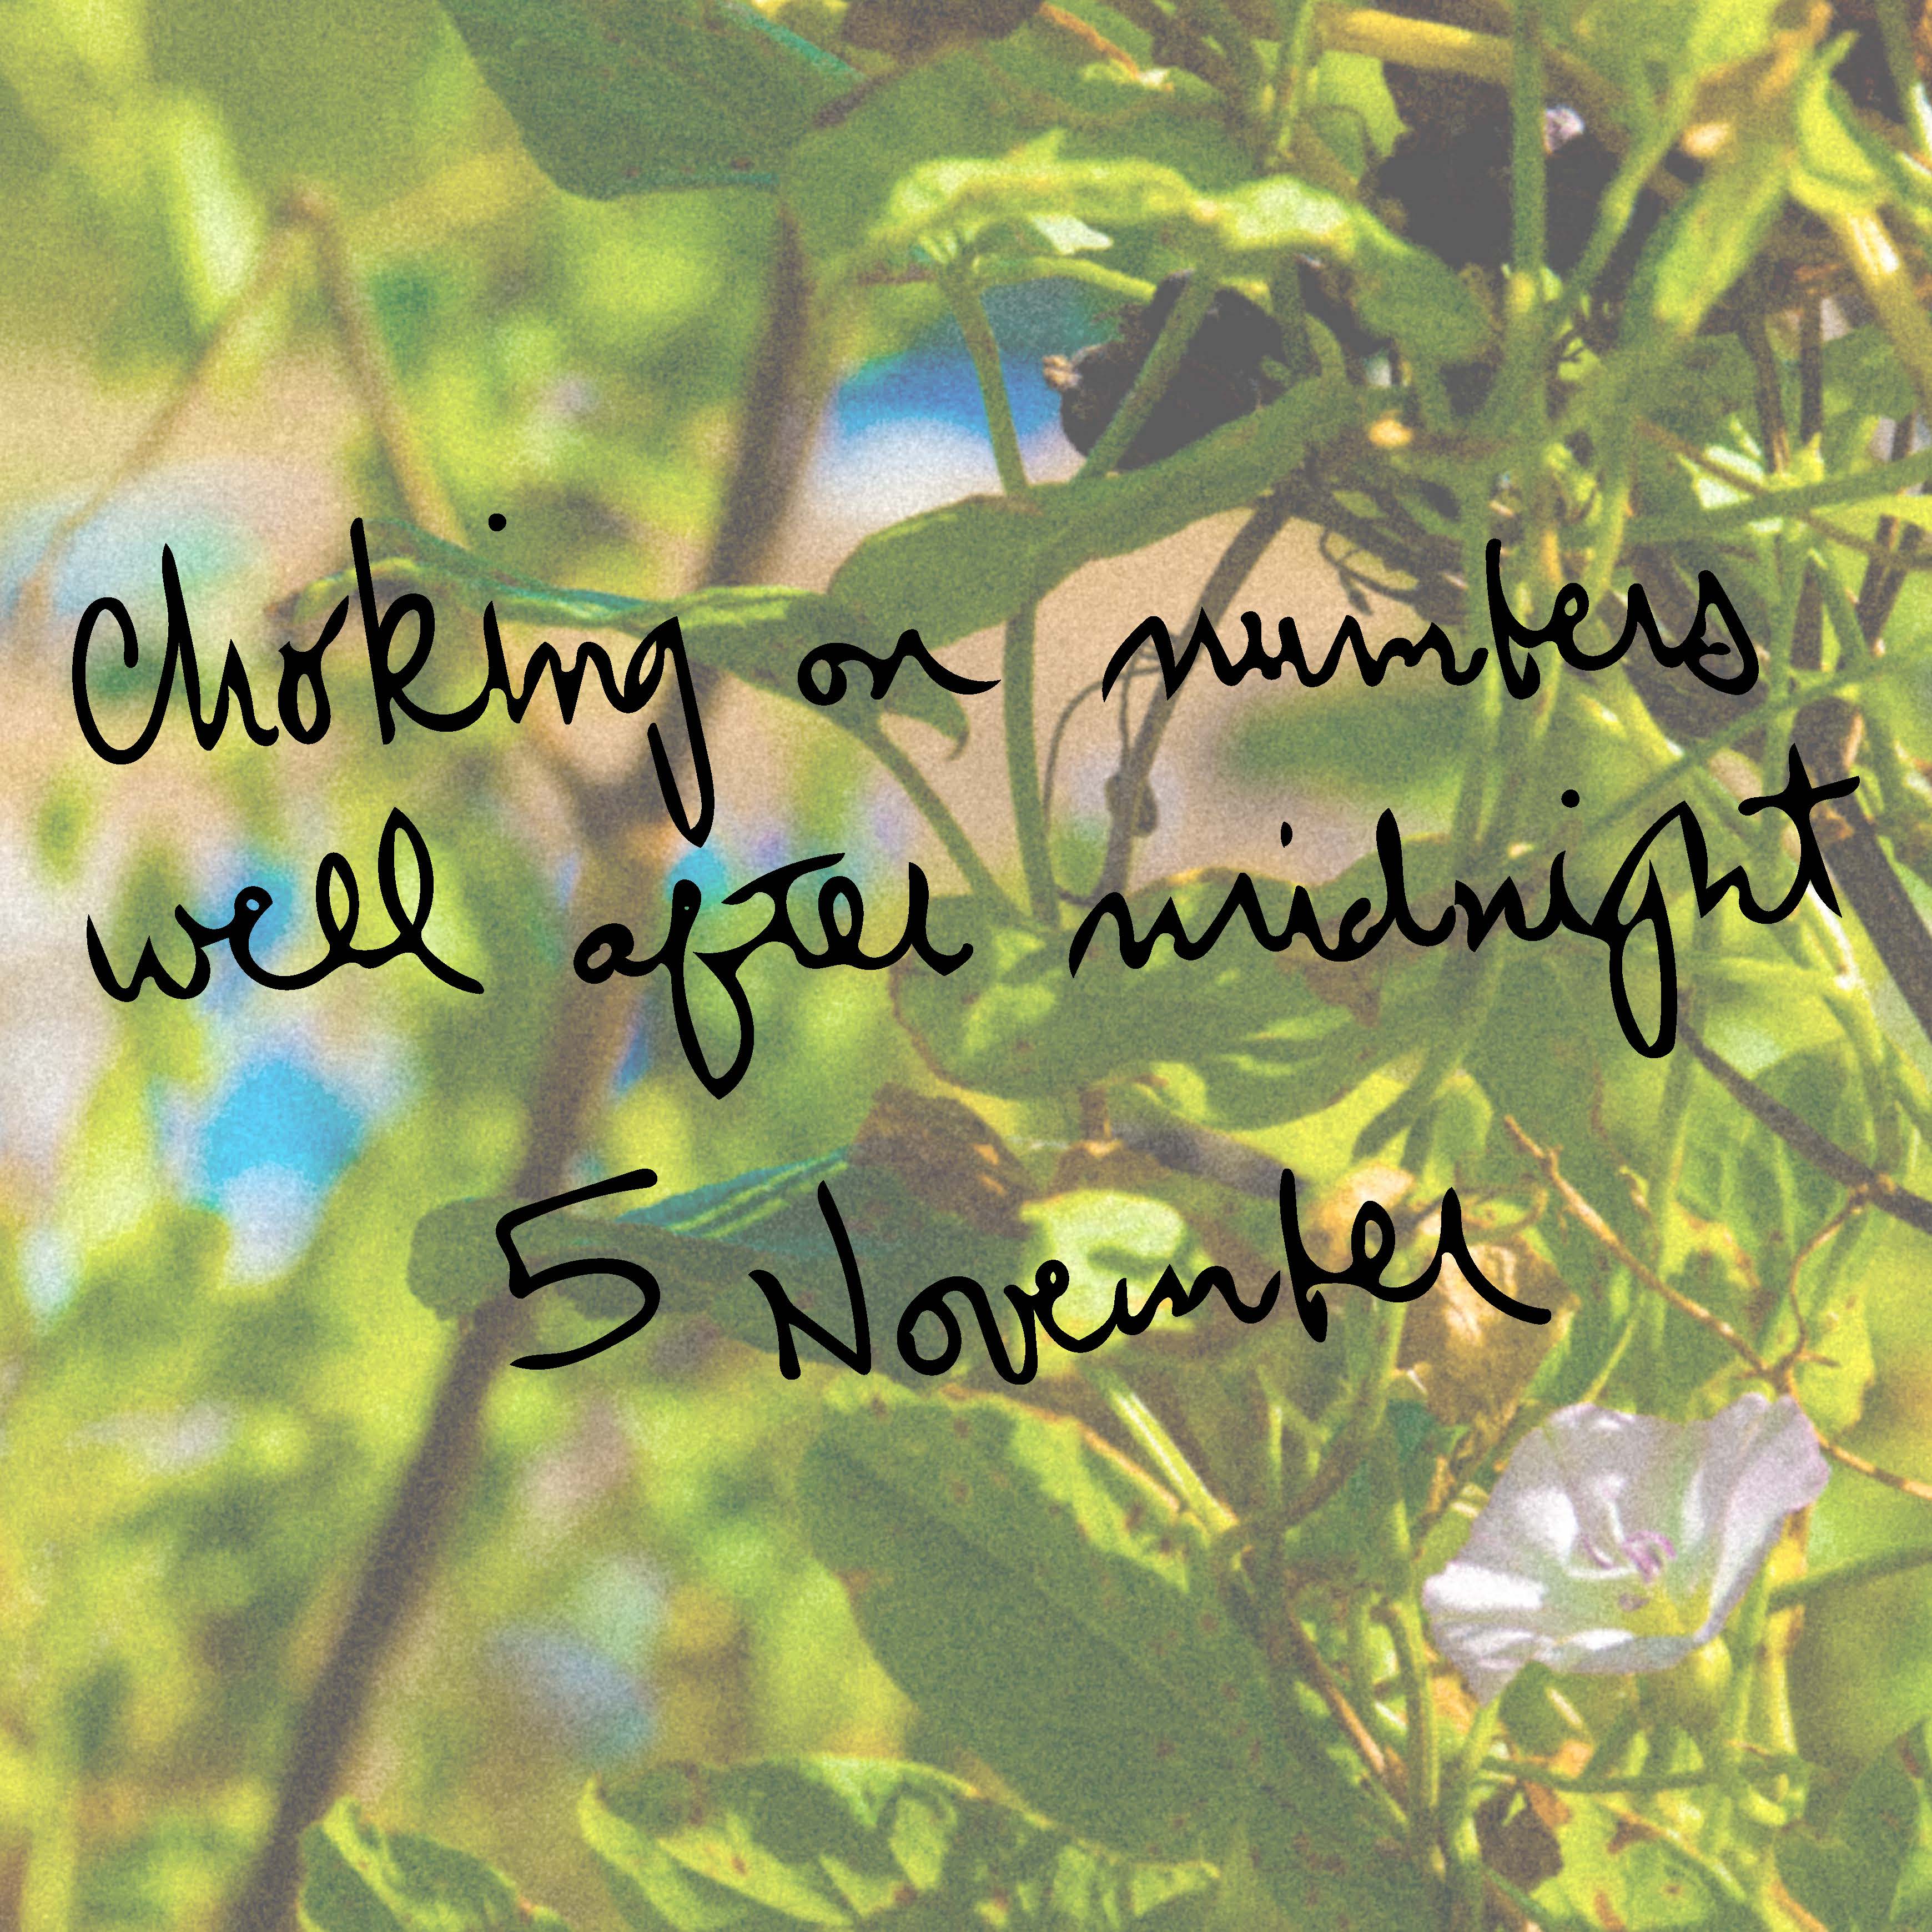 Choking on numbers
well after midnight
5 November